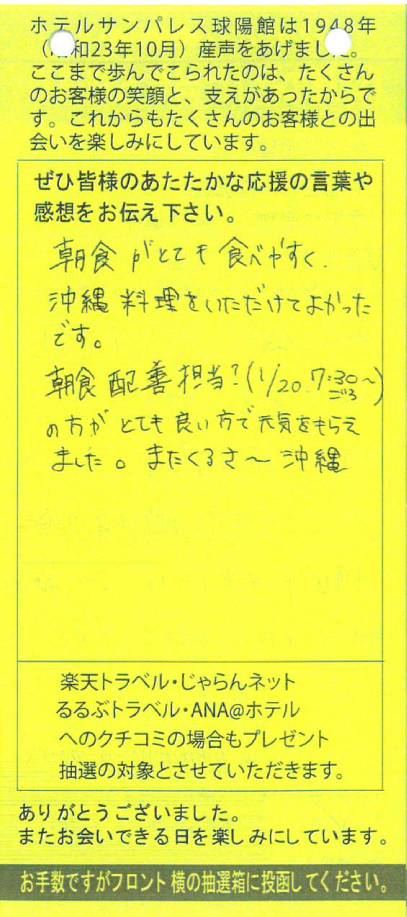 ホテルサンパレス球陽館は1948年
（昭和23年10月）産声をあげました。
ここまで歩んでこられたのは、たくさん
のお客様の笑顔と、支えがあったからで
す。これからもたくさんのお客様との出
会いを楽しみにしています。
ぜひ皆様のあたたかな応援の言葉や
感想をお伝え下さい。
朝食がとても食べやすく、
沖縄料理をいただけてよかった
です。
朝食配善担当?(1/20 7:30〜ごろ)
の方がとても良い方で元気をもらえ
ました。またくるさ〜沖縄
楽天トラベル・じゃらんネット
るるぶトラベル・ANA@ホテル
へのクチコミの場合もプレゼント
抽選の対象とさせていただきます。
ありがとうございました。
またお会いできる日を楽しみにしています。
お手数ですがフロント横の抽選箱に投函してください。